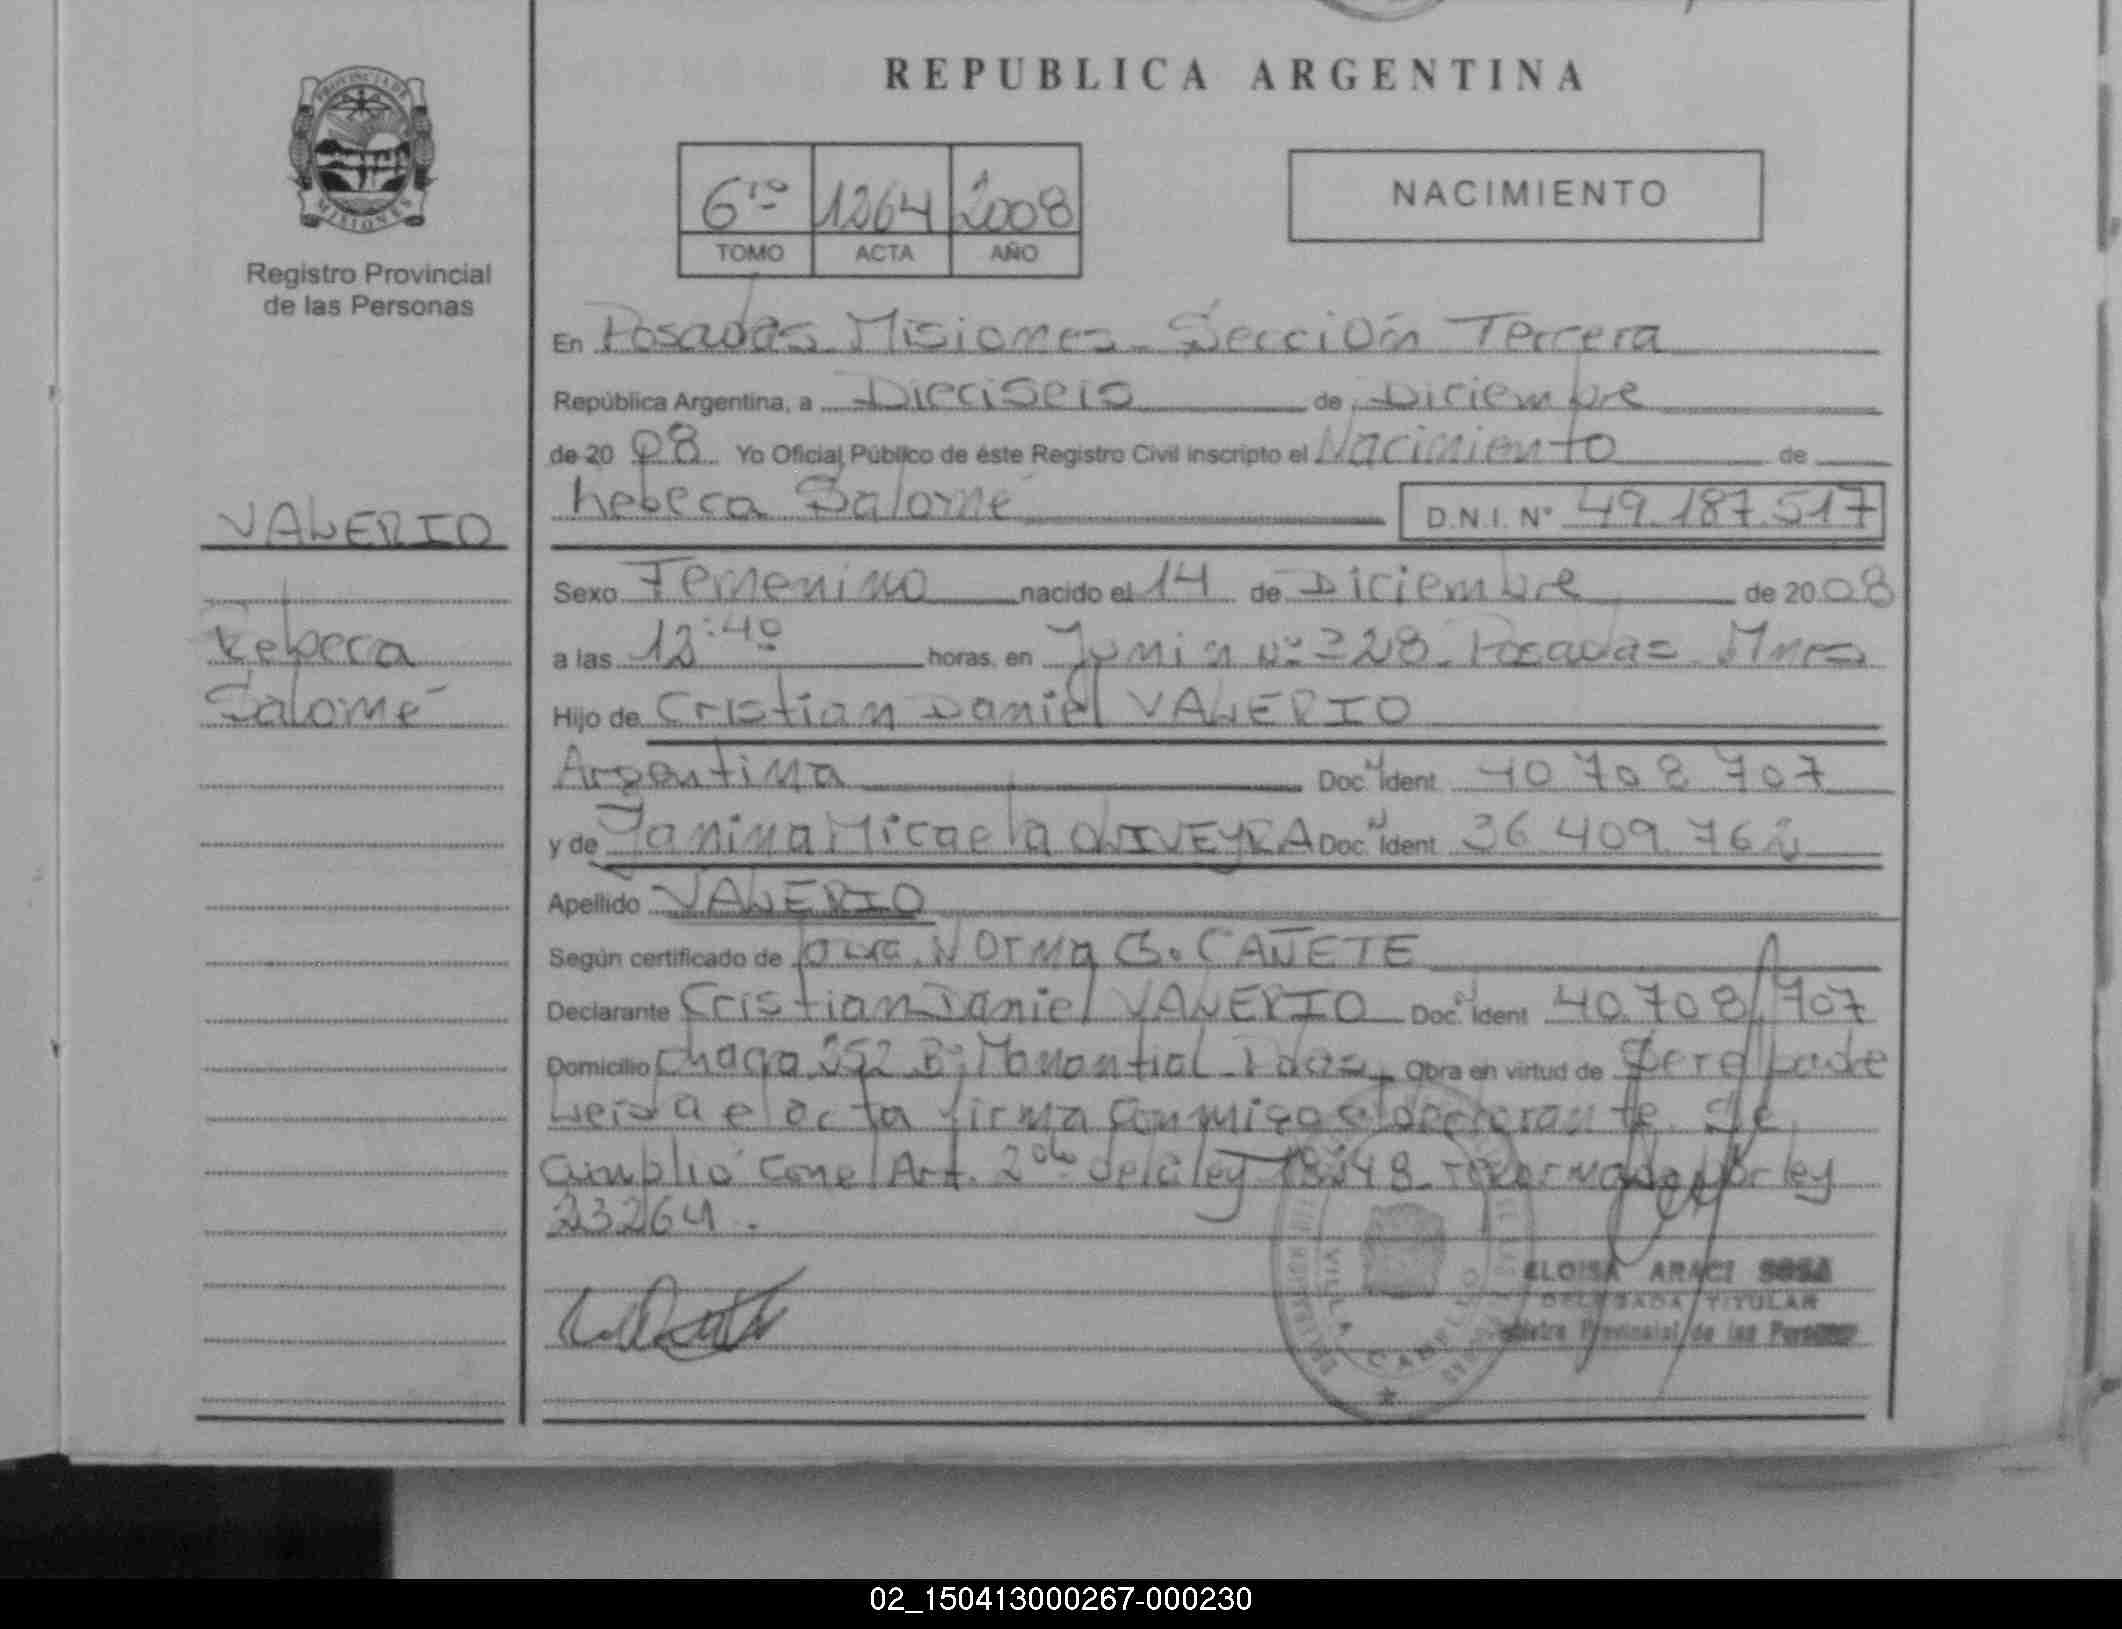 REPUBLICA ARGENTINA
PROVINCIA DE
MISIONES
Registro Provincial
de las Personas
6to 1264 2008
TOMO ACTA AÑO
NACIMIENTO
En Posadas Misiones Sección Tercera
República Argentina, a Dieciseis de Diciembre
de 2008 Yo Oficial Público de éste Registro Civil inscripto el Nacimiento de
Rebeca Salomé D.N.I. N° 49.187.517
VALERIO
Rebeca
Salomé
Sexo Femenino nacido el 14 de Diciembre de 2008
a las 12:40 horas, en Junin Nº 228. Posadas Mnes
Hijo de Cristian Daniel VALERIO
Argentina Doc. Ident. 40 708 707
y de Yanina Micaela OLIVEYRA Doc. Ident. 36 409 762
Apellido VALERIO
Según certificado de Norma G. CAÑETE
Declarante Cristian Daniel VALERIO Doc. Ident 40.708.707
Domicilio Chaca 252 Bº Manantial Pdas Obra en virtud de Ser el padre
Leida el acta firma conmigo el declarante. Se
cumplió con el Art. 2do de la ley 18248 reformada por ley
23264.
ELOISA ARACI SOSA
DELEGADA TITULAR
Registro Provincial de las Personas
VILLA CABELLO
02_150413000267-000230